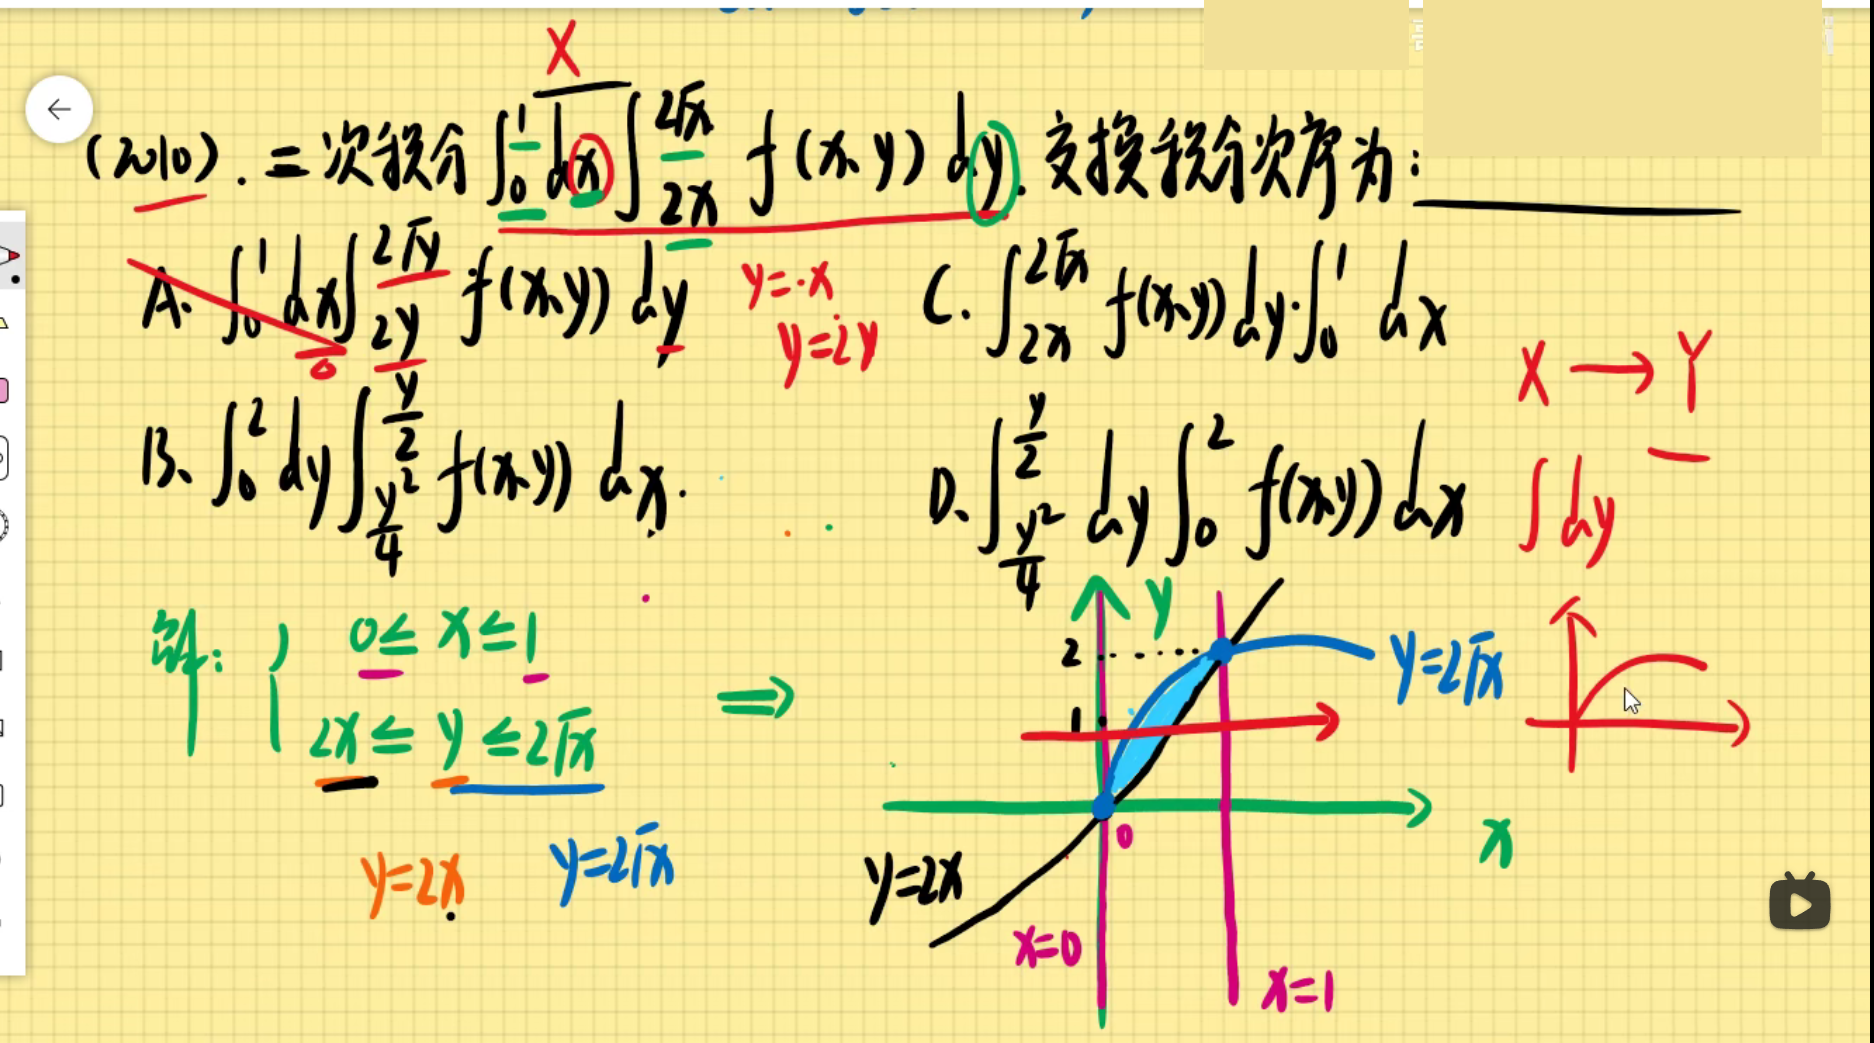 X
(2010). 二次积分 ∫₀¹ dx ∫_{2x}^{2√x} f(x,y) dy. 交换积分次序为: ______
A. ∫₀¹ dx ∫_{2y}^{2√y} f(x,y) dy
0
y=x
y=2y
C. ∫_{2x}^{2√x} f(x,y) dy·∫₀¹ dx
X → Y
B. ∫₀² dy ∫_{y²/4}^{y/2} f(x,y) dx.
D. ∫_{y²/4}^{y/2} dy ∫₀² f(x,y) dx
∫ dy
解: { 0≤ x ≤1
2x ≤ y ≤ 2√x
⇒
y=2x
y=2√x
y
2
1
0
x
y=2√x
y=2x
x=0
x=1